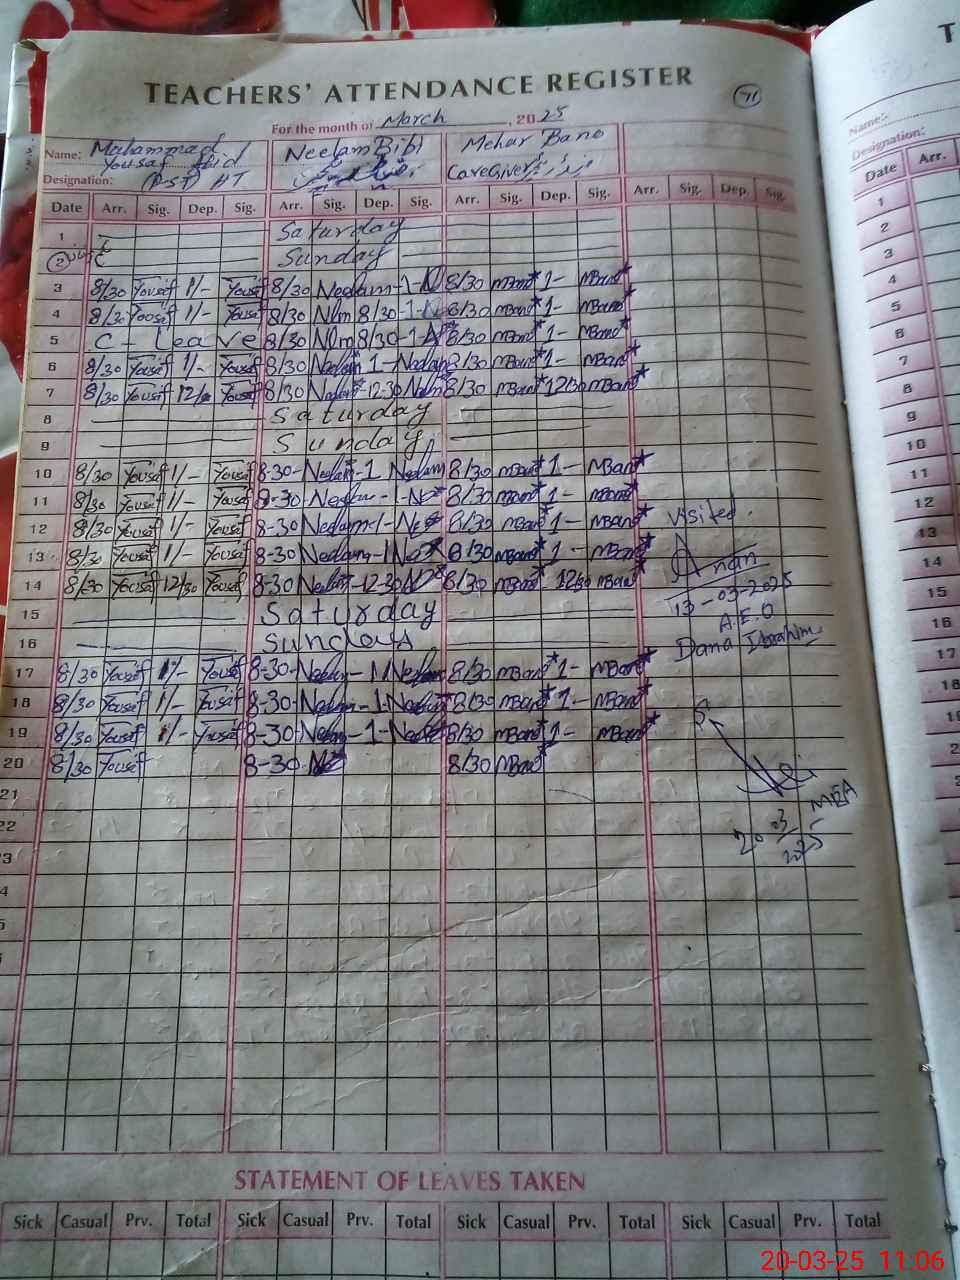 TEACHERS' ATTENDANCE REGISTER
71
For the month of March, 2025
Name: Muhammad Yousaf Neelam Bibi Mehar Bano
Designation: (PST) HT CareGiver
Date Arr. Sig. Dep. Sig. Arr. Sig. Dep. Sig. Arr. Sig. Dep. Sig. Arr. Sig. Dep. Sig.
1 Saturday
2 Sunday
3 8/30 Yousaf 1/- Yousaf 8/30 Neelam-1-N 8/30 MBano 1- MBano
4 8/30 Yousaf 1/- Yousaf 8/30 Nlm 8/30-1-N 8/30 MBano 1- MBano
5 C - Leave 8/30 Nlm 8/30-1- 8/30 MBano 1- MBano
6 8/30 Yousaf 1/- Yousaf 8/30 Neelam 1-Neelam 8/30 MBano 1- MBano
7 8/30 Yousaf 12/30 Yousaf 8/30 Neelam 12.30 Neelam 8/30 MBano 12/30 MBano
8 Saturday
9 Sunday
10 8/30 Yousaf 1/- Yousaf 8-30-Neelam-1 Neelam 8/30 MBano 1- MBano
11 8/30 Yousaf 1/- Yousaf 8-30-Neelam-1-Ne 8/30 MBano 1- MBano
12 8/30 Yousaf 1/- Yousaf 8-30-Neelam-1-Ne 8/30 MBano 1- MBano
Visited.
13 8/30 Yousaf 1/- Yousaf 8-30 Neelam-1 Ne 8/30 MBano 1- MBano
14 8/30 Yousaf 12/30 Yousaf 8-30-Neelam-12-30 8/30 MBano 12/30 MBano
13-03-2025
15 Saturday
A.E.O
16 Sundays
Dana Ibrahim
17 8/30 Yousaf 1/- Yousaf 8-30-Neelam-1 Neelam 8/30 MBano 1- MBano
18 8/30 Yousaf 1/- Yousaf 8-30-Neelam-1-Neelam 8/30 MBano 1- MBano
19 8/30 Yousaf 1/- Yousaf 8-30-Neelam-1-Neelam 8/30 MBano 1- MBano
20 8/30 Yousaf 8-30 8/30 MBano
21
MEA
22
20 03
2025
STATEMENT OF LEAVES TAKEN
Sick Casual Prv. Total Sick Casual Prv. Total Sick Casual Prv. Total Sick Casual Prv. Total
Name:
Designation:
Date Arr.
1
2
3
4
5
6
7
8
9
10
11
12
13
14
15
16
17
18
20-03-25 11:06